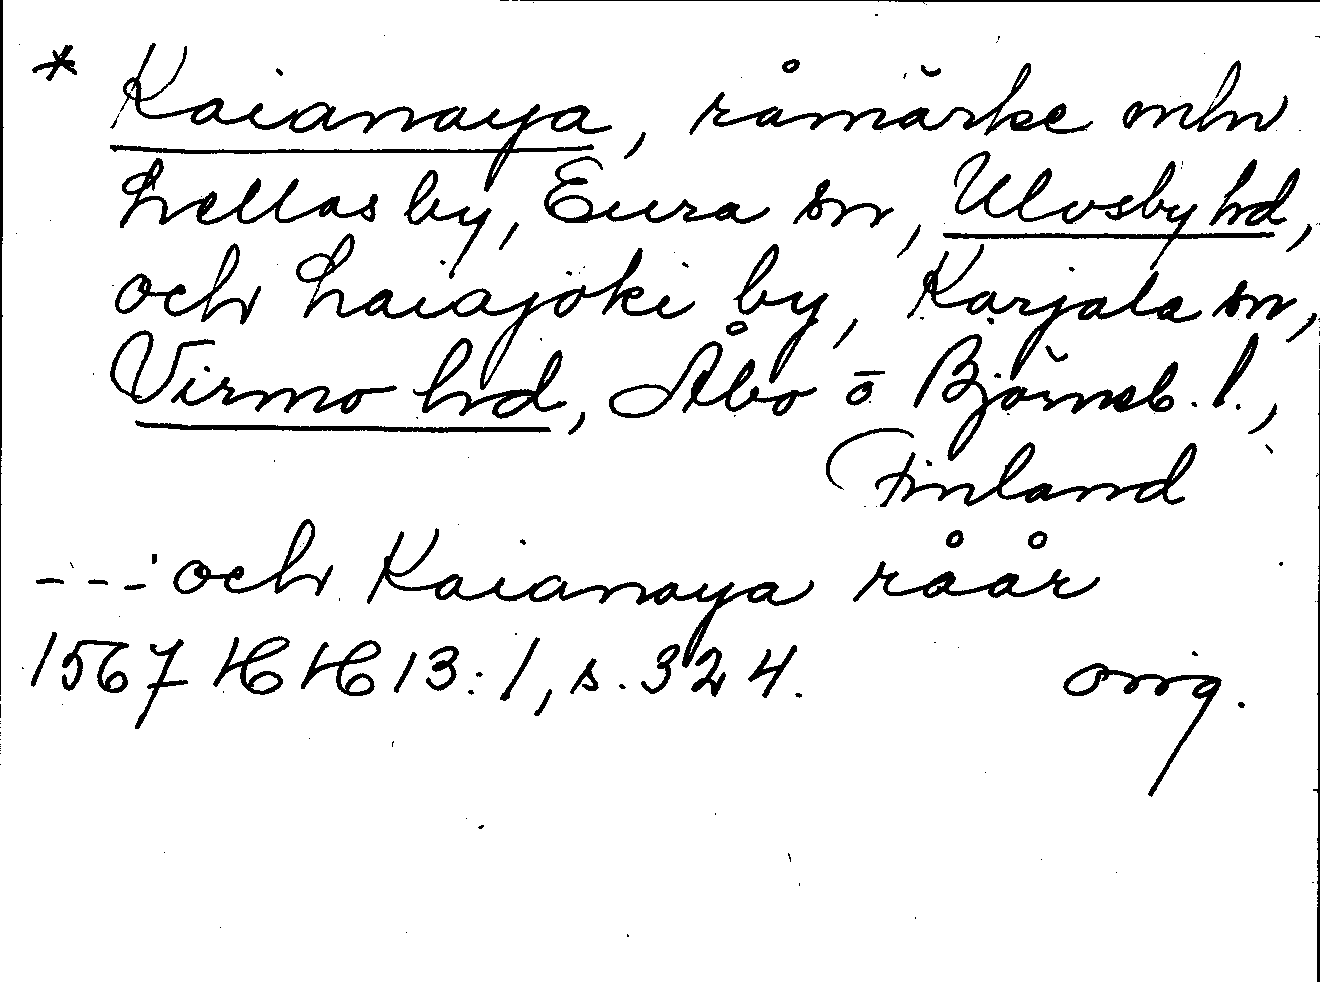 * Kaianaya, råmärke mln
Hellas by, Eura sn, Ulvsby hd,
och Laiajoki by, Karjala sn,
Virmo hd, Åbo o Björneb. l.,
Finland
---: och Kaianaya råår
1567 HH 13:1, s. 324. orig.